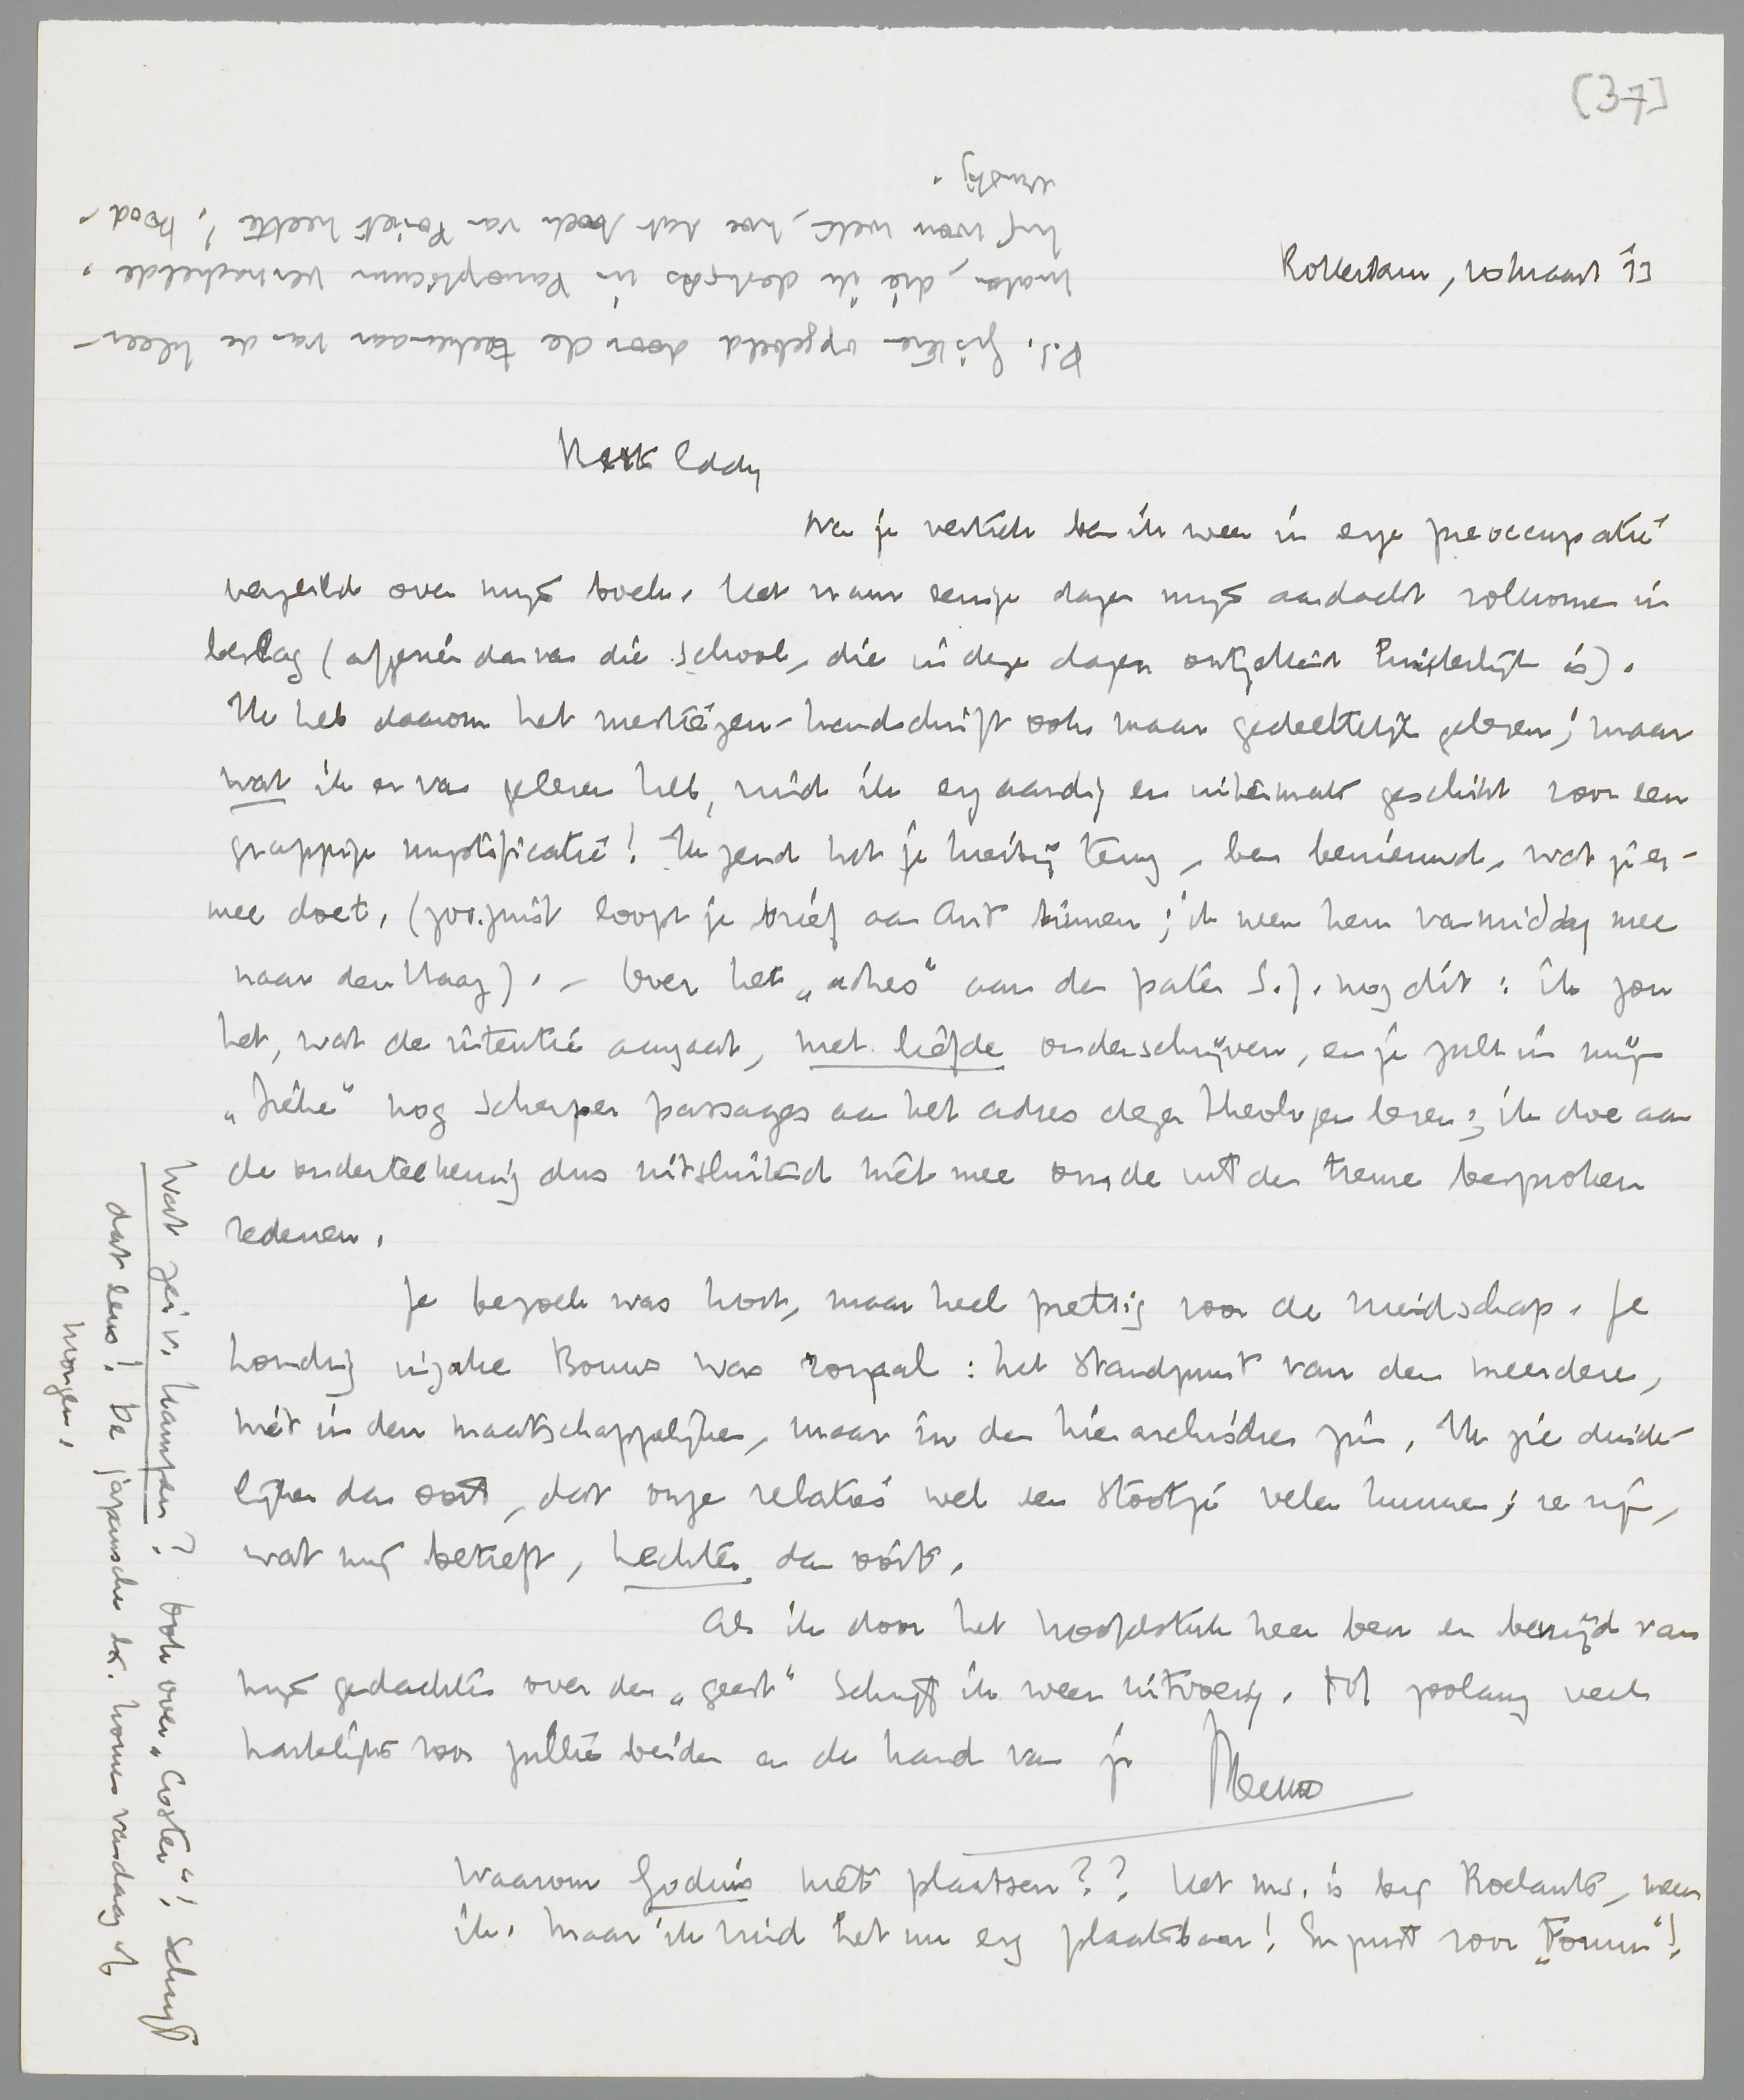 [37]
Rotterdam, 10 Maart '33
Beste Eddy
Na je vertrek ben ik weer in enge preoccupatie
vergeild over mijn boek. Het nam eenige dagen mijn aandacht volkomen in
beslag (afgezien dan van die school, die in deze dagen ontzettend hinderlijk is).
Ik heb daarom het mestiezen-handschrift ook maar gedeeltelijk gelezen; maar
wat ik er van gelezen heb, vind ik erg aardig en uitermate geschikt voor een
grappige mystificatie! Ik zend het je hierbij terug, ben benieuwd, wat je er-
mee doet. (zoo juist loopt je brief aan Ant binnen; ik neem hem vanmiddag mee
naar den Haag). – Over het „adres" aan den pater S.J. nog dit: ik zou
het, wat de intentie aangaat, met liefde onderschrijven, en je zult in mijn
nog scherper passages aan het adres dezer theologen lezen; ik doe aan
de onderteekening dus uitsluitend niet mee om de uit den treure besproken
redenen.
Je bezoek was kort, maar heel prettig voor de vriendschap. Je
houding inzake Bouws was royaal: het standpunt van den meerdere,
niet in den maatschappelijken, maar in den hierarchischen zin. Ik zie duide-
lijker dan ooit, dat onze relaties wel een stootje velen kunnen; ze zijn,
wat mij betreft, hechter dan ooit.
Als ik door het hoofdstuk heen ben en bevrijd van
mijn gedachten over den „geest" schrijf ik weer uitvoerig. Tot zoolang veel
hartelijks voor jullie beiden en de hand van je Menno
Waarom Godius niet plaatsen?? Het ms. is bij Roelants, meen
ik. Maar ik vind het nu erg plaatsbaar! En juist voor „Forum"!
Wat zei v. Kampen? Ook over „Coster"! Schrijf
dat eens! De japansche dr. komen vandaag of
morgen.
P.S. Gisteren opgebeld door de teekenaar van de kleer-
maker, die ik destijds in Panopticum vernachelde,
hij wou weten, hoe dat boek van Poriet heette! Nood-
lottig.